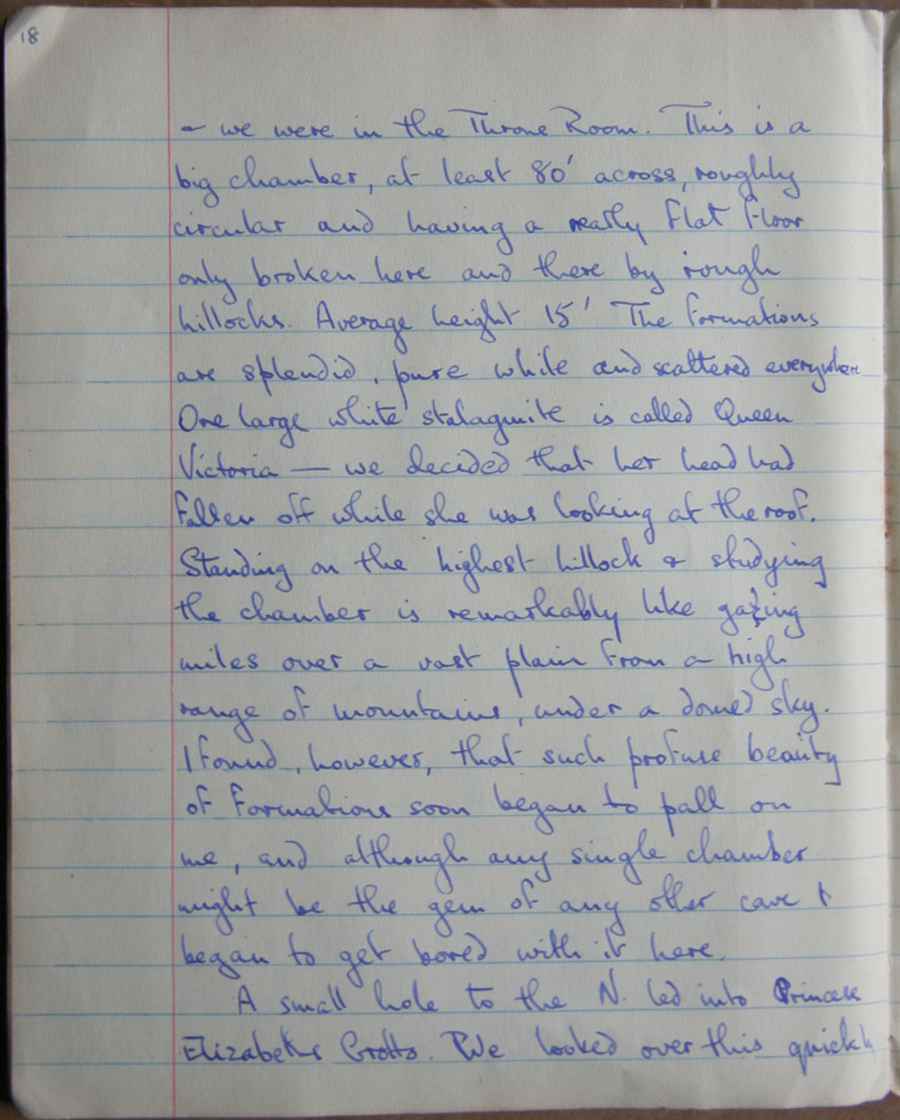 18
- we were in the Throne Room. This is a
big chamber, at least 80' across, roughly
circular and having a really flat floor
only broken here and there by rough
hillocks. Average height 15' The formations
are splendid, pure white and scattered everywhere
One large white stalagmite is called Queen
Victoria — we decided that her head had
fallen off while she was looking at the roof.
Standing on the highest hillock & studying
the chamber is remarkably like gazing
miles over a vast plain from a high
range of mountains, under a domed sky.
I found, however, that such profuse beauty
of formations soon began to pall on
me, and although any single chamber
might be the gem of any other cave I
began to get bored with it here.
A small hole to the N. led into Princess
Elizabeth's Grotto. We looked over this quickly